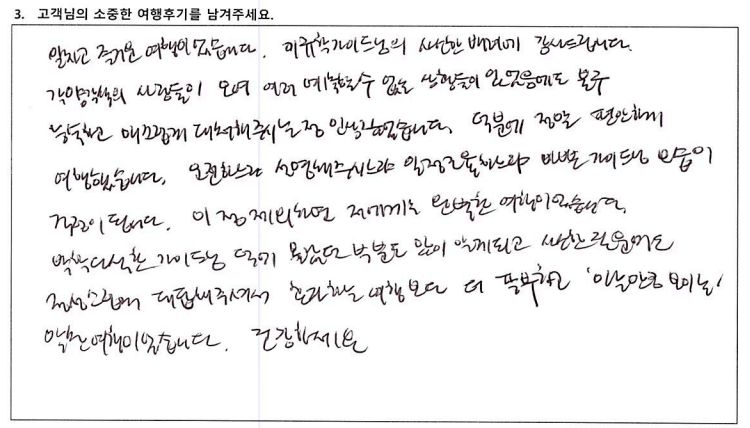 3. 고객님의 소중한 여행후기를 남겨주세요.
알차고 즐거운 여행이었습니다. 이규학가이드님의 세심한 배려에 감사드립니다.
각양각색의 사람들이 모여 여러 예측할수 없는 상황들이 있었음에도 모두
능숙하고 매끄럽게 대처해주시는점 인상깊었습니다. 덕분에 정말 편안하게
여행했습니다. 운전하시랴 설명해주시랴 일정조율하시랴 바쁜 가이드님 모습이
걱정이 됩니다. 이 점 제외하면 저에게는 완벽한 여행이었습니다.
박학다식한 가이드님 덕에 몰랐던 부분도 많이 알게되고 사소한 질문에도
정성스럽게 대답해주셔서 혼자하는 여행보다 더 풍부하고 '아는만큼 보이는'
알찬 여행이었습니다. 건강하세요